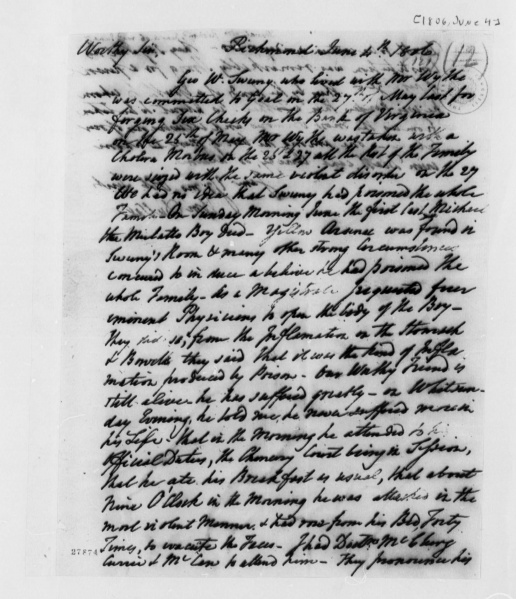 [1806, June 4]
12
Worthy Sir, Richmond June 4th 1806
Geo W. Sweny who lived with Mr Wythe
was committed to Goal in the 27th May last for
forging Six Checks on the Bank of Virginia
on the 25th of May Mr Wythe was taken with a
Cholera Morbus, on the 26 & 27 all the rest of the Family
were seized with the same violent disorder on the 27
We had no idea that Sweney had poisoned the whole
Family. On Sunday Morning June the first (as) Michael
the Mulatto Boy Died - Yellow Arsenic was found in
Sweny's Room & many other strong Circumstances
concured to induce a believe he had poisoned the
whole Family - As a Magistrate I requested four
eminent Physicians to open the body of the Boy -
they did so, from the Inflamation on the Stomach
& Bowels they said that it was the kind of Infla
mation produced by Poison - Our Worthy Friend is
still alive he has suffered greatly - on Whitsun-
day Evening, he told me, he never suffered more in
his Life - that in the Morning he attended to his
Official Duties, the Chancery Court being in Session,
that he ate his Breakfast as usual, that about
Nine O Clock in the Morning he was attacked in the
most violent Manner, & had rose from his Bed, Forty
Times, to evacuate the Faeces - I had Doctrs McClurg
Currie & McCaw to attend him - They pronounce his
27874